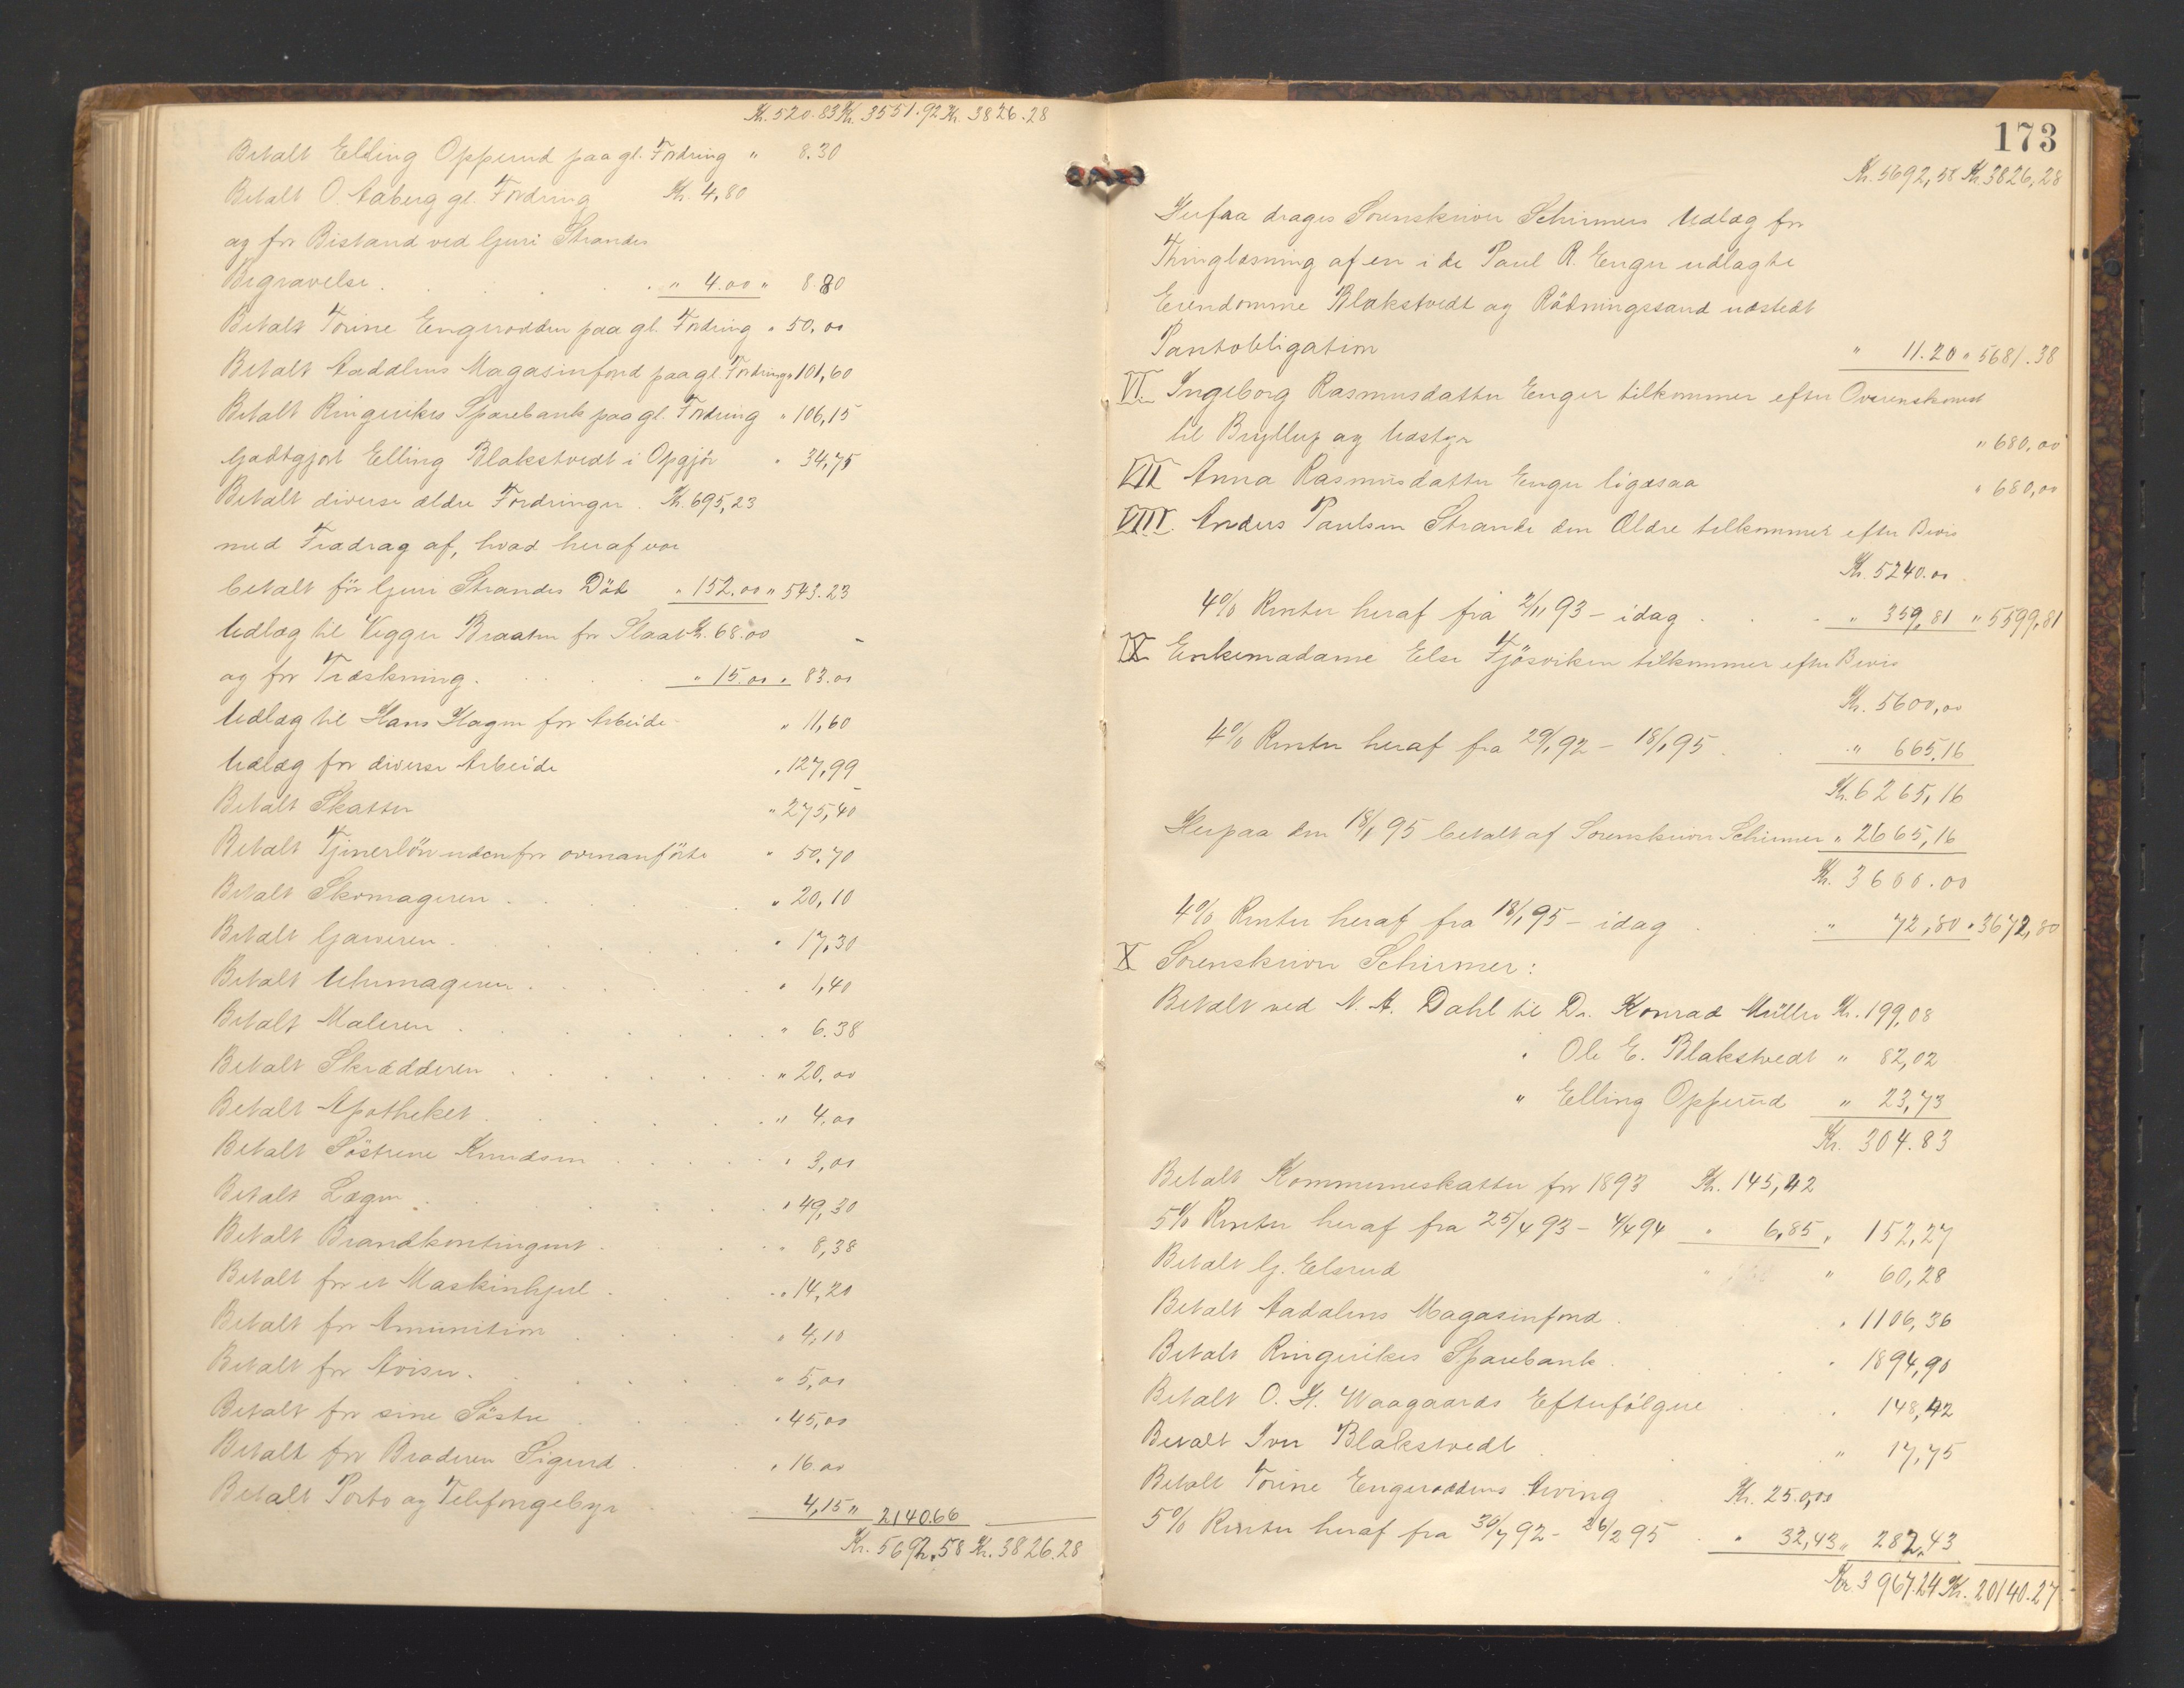 Kr. 520.83 Kr. 3551.92 Kr. 3826.28
Betalt Elling Opperud paa gl. Fordring " 8.30
Betalt O. Aaberg gl. Fordring Kr. 4,80
og for Bistand ved Guri Strandes
Begravelse . . . " 4.00 " 8.80
Betalt Torine Engerodden paa gl. Fordring " 50,00
Betalt Aadalens Magasinfond paa gl. Fordring " 101,60
Betalt Ringerikes Sparebank paa gl. Fordring " 106,15
Godtgjort Elling Blakstvedt i Opgjör " 34,75
Betalt diverse ældre Fordringer . Kr. 695,23
med Fradrag af, hvad heraf var
betalt för Guri Strandes Död " 152.00 " 543.23
Udlæg til Vegger Braaten for Slaat Kr. 68.00
og for Træskning . . . " 15.00 " 83.00
Udlæg til Hans Hagen for Arbeide " 11,60
Udlæg for diverse Arbeide " 127,99
Betalt Skatter " 275,40
Betalt Tjenerlön udenfor ovenanförte " 50,70
Betalt Skomageren . . . " 20,10
Betalt Garveren . . . " 17,30
Betalt Uhrmageren . . . " 1,40
Betalt Maleren . . . " 6.38
Betalt Skrædderen . . . " 20,00
Betalt Apotheket . . . " 4.00
Betalt Söstrene Knudsen . . . " 3,00
Betalt Lægen . . . " 49,30
Betalt Brandkontingent . . . " 8,38
Betalt for et Maskinhjul . . . " 14,20
Betalt for Amunition . . . " 4,10
Betalt for Aviser . . . " 5,00
Betalt for sine Söstre . . . " 45,00
Betalt for Broderen Sigurd . . . " 16.00
Betalt Porto og Telefongebyr . . . 4,15 " 2140.66
Kr. 5692.58 Kr. 3826.28
173
Kr. 5692,58 Kr. 3826,28
Herfra drages Sorenskriver Schirmers Udlæg for
Thinglæsning af en i de Paul R. Enger udlagte
Eiendomme Blakstvedt og Rötningssand udstedt
Pantobligation " 11.20 " 5681.38
VI. Ingeborg Rasmusdatter Enger tilkommer efter Overenskomst
til Bryllup og Udstyr " 680,00
VII Anna Rasmusdatter Enger ligesaa " 680,00
VIII. Anders Paulsen Strande den Ældre tilkommer efter Bevis
Kr. 5240.00
4% Renter heraf fra 2/11 93 - idag . . . " 359,81 " 5599,81
IX Enkemadame Else Fjösviken tilkommer efter Bevis
Kr. 5600,00
4% Renter heraf fra 29/1 92 - 18/1 95 . . " 665,16
Kr. 6265,16
Herpaa den 18/1 95 betalt af Sorenskriver Schirmer " 2665,16
Kr. 3600.00
4% Renter heraf fra 18/1 95 - idag . . " 72,80 " 3672,80
X Sorenskriver Schirmer:
Betalt ved N. A. Dahl til Dr. Konrad Müller Kr. 199,08
" Ole E. Blakstvedt " 82,02
" Elling Opperud " 23,73
Kr. 304.83
Betalt Kommuneskatter for 1893 Kr. 145,42
5% Renter heraf fra 25/4 93 - 4/4 94 " 6,85 " 152,27
Betalt G. Elsrud " 60,28
Betalt Aadalens Magasinfond . " 1106,36
Betalt Ringerikes Sparebank . . . " 1894,90
Betalt O. H. Waagaards Efterfölgere . . " 148,42
Betalt Iver Blakstvedt . . . " 17,75
Betalt Torine Engeroddens Arving . Kr. 250,00
5% Renter heraf fra 30/7 92 - 26/2 95 . " 32,43 " 282,43
Kr. 3967.24 Kr. 20140.27